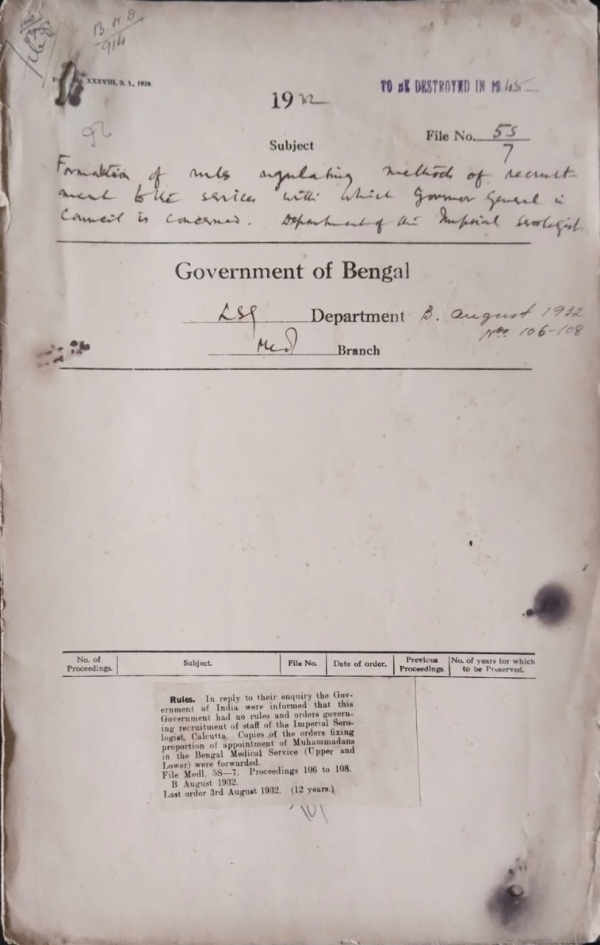 B M D
9/4
XXXVIII, S. 1., 1924.
TO BE DESTROYED IN 1945
1932
92
File No. 5S/7
Subject
Formation of rules regulating methods of recruit-
ment to the services with which Governor General in
Council is concerned. Department of the Imperial Serologist
Government of Bengal
LSG Department B. August 1932
Nos 106-108
Med Branch
No. of Proceedings. Subject. File No. Date of order. Previous Proceedings. No. of years for which to be Preserved.
Rules. In reply to their enquiry the Gov-
ernment of India were informed that this
Government had no rules and orders govern-
ing recruitment of staff of the Imperial Sero-
logist, Calcutta. Copies of the orders fixing
proportion of appointment of Muhammadans
in the Bengal Medical Service (Upper and
Lower) were forwarded.
File Medl. 5S—7. Proceedings 106 to 108.
B August 1932.
Last order 3rd August 1932. (12 years.)